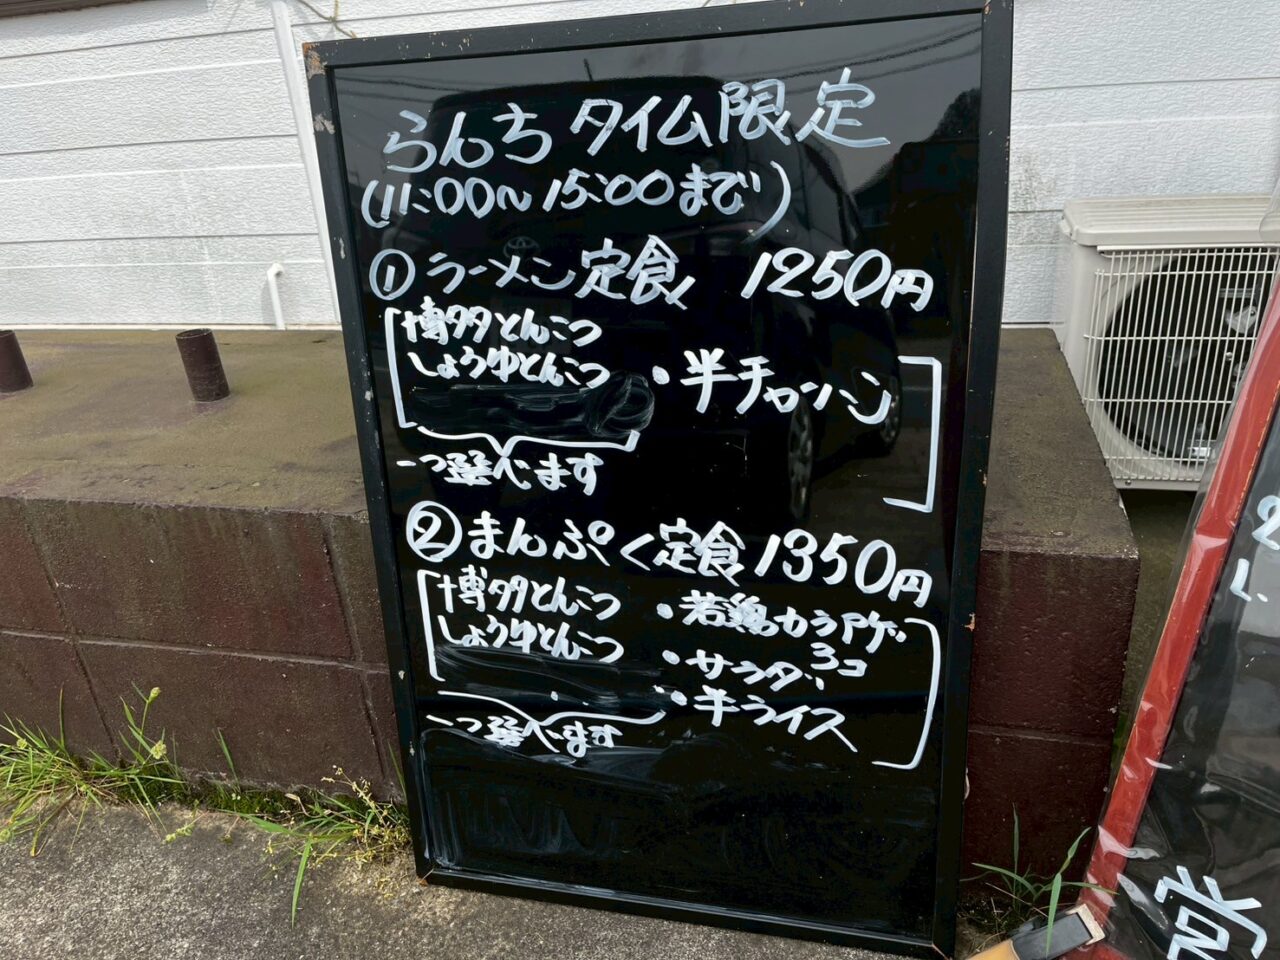 らんちタイム限定
(11:00〜15:00まで)
①ラーメン定食 1250円
博多とんこつ
しょうゆとんこつ
・半チャーハン
一つ選べます
②まんぷく定食 1350円
博多とんこつ
しょうゆとんこつ
一つ選べます
・若鶏カラアゲ
3コ
・サラダ
・半ライス